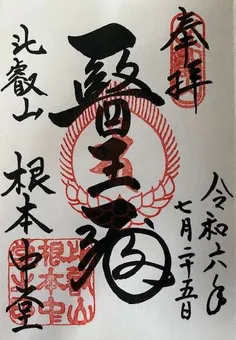 奉拝
令和六年
七月二十五日
醫王殿
比叡山
根本中堂
比叡山
根本中
堂